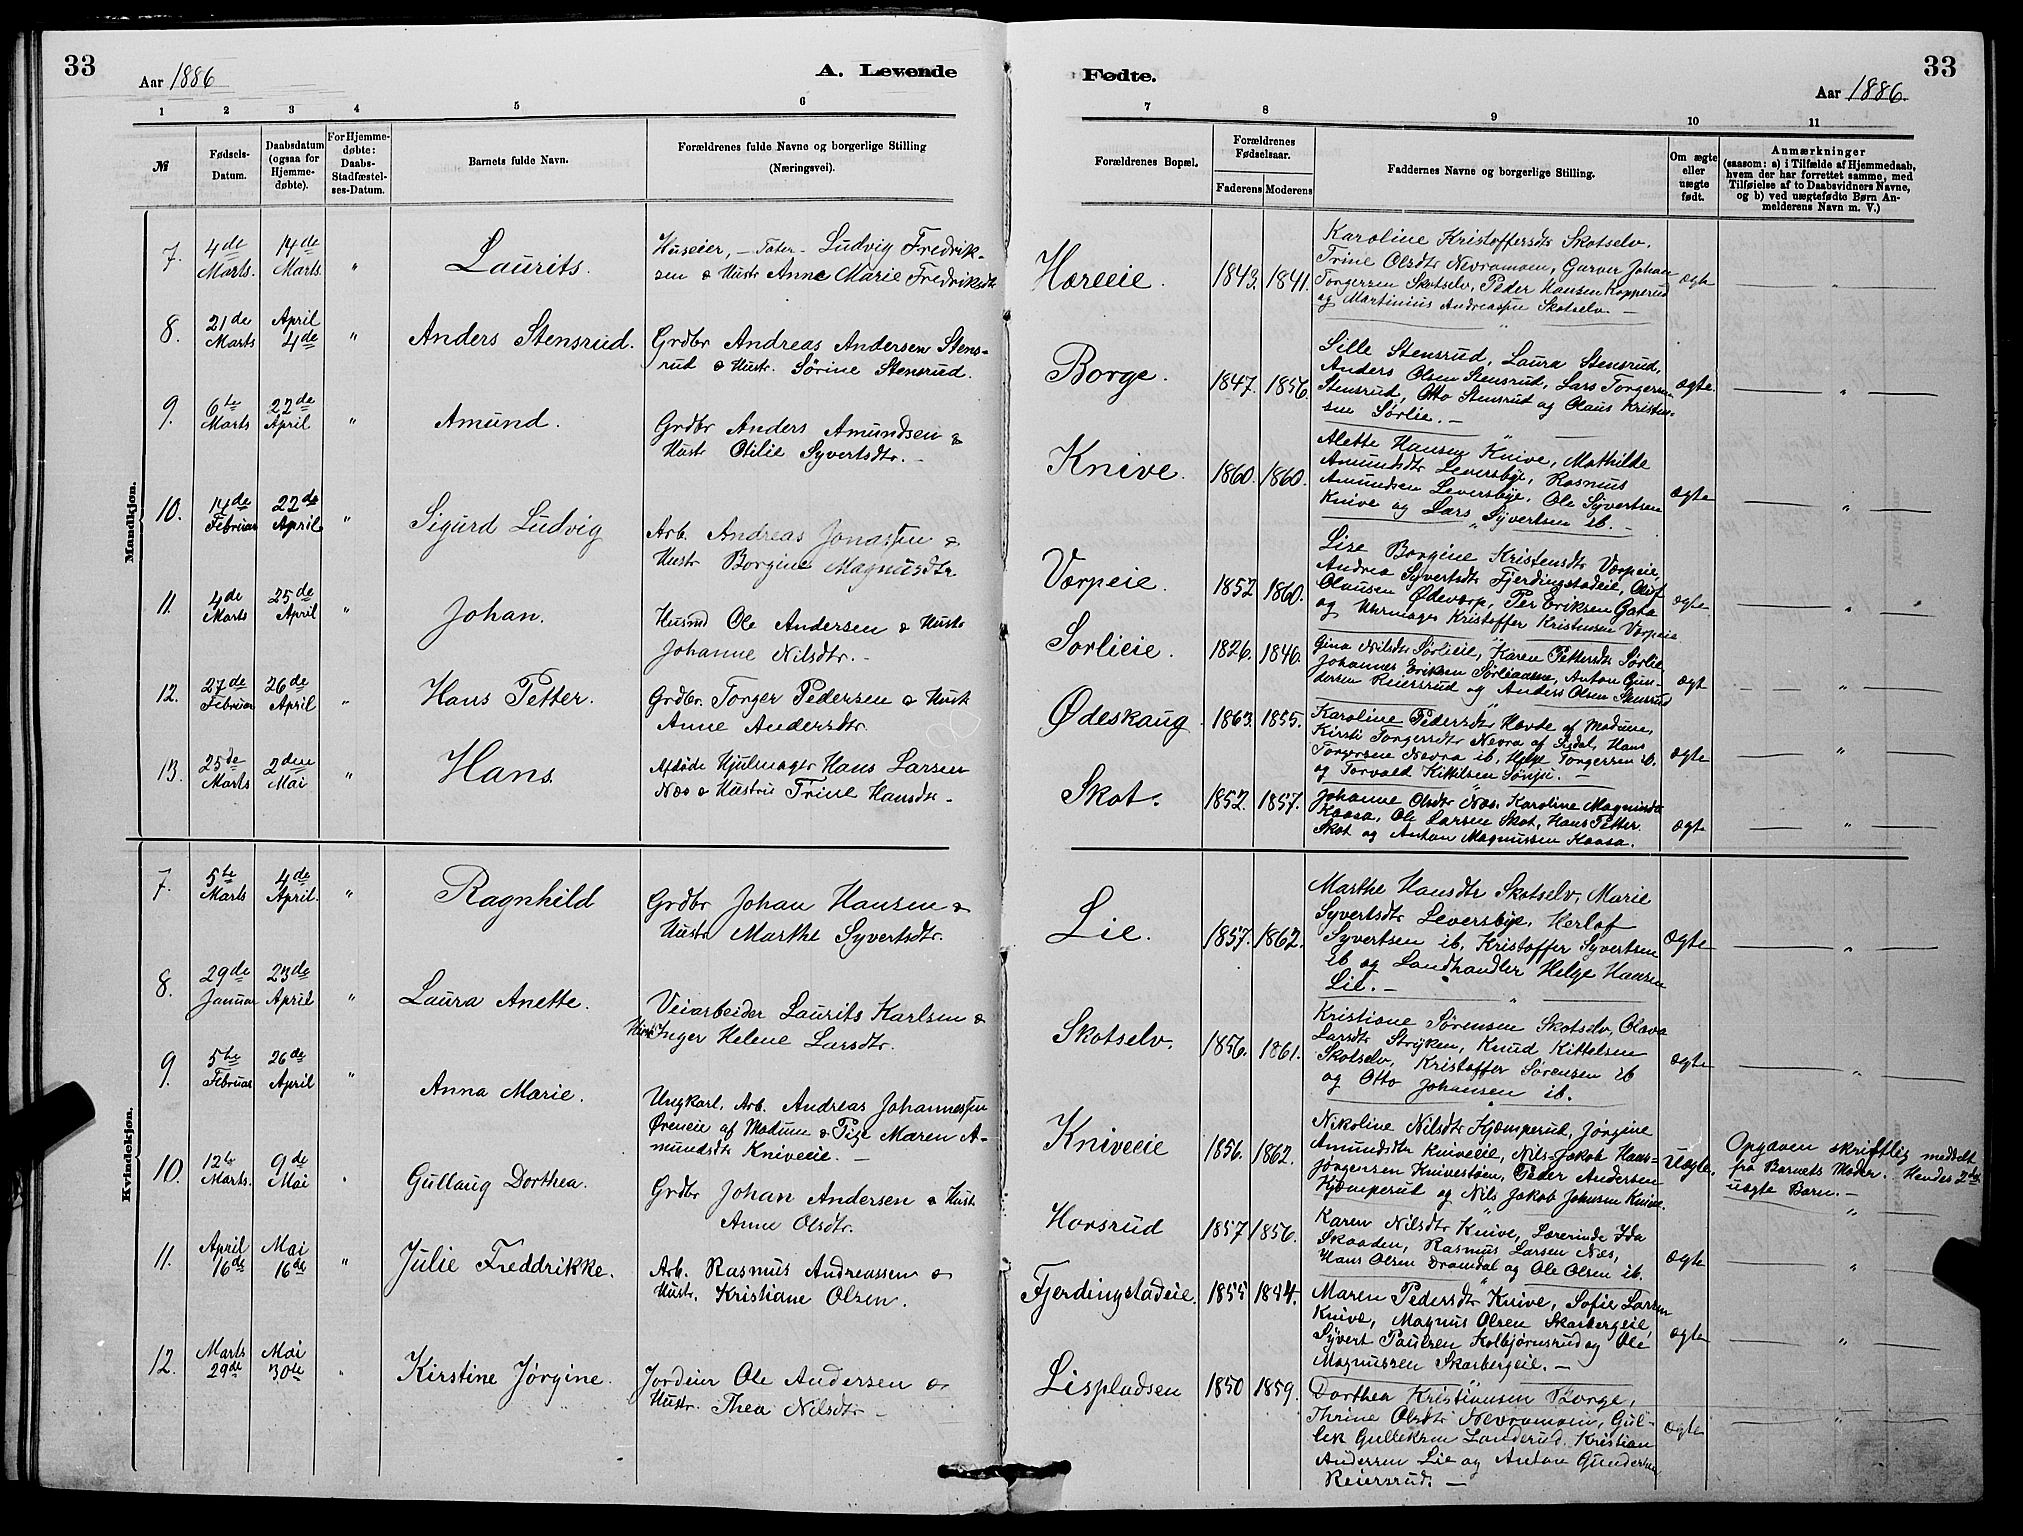 33
Aar 1886
A. Levende
1 2 3 4 5 6
№
Fødsels-
Datum.
Daabsdatum
(ogsaa for
Hjemme-
døbte).
For Hjemme-
døbte:
Daabs-
Stadfæstel-
ses-Datum.
Barnets fulde Navn.
Forældrenes fulde Navne og borgerlige Stilling
(Næringsvei).
Mandkjøn.
7. 4de Marts. 14de Marts " Laurits.
Huseier, - Tater - Ludvig Fredrik-
sen & Hustr Anne Marie Fredriksdtr
8. 21de Marts April 4de " Anders Stensrud.
Grdbr Andreas Andersen Stens-
rud & Hustr. Sørine Stensrud.
9. 6te Marts 22de April " Amund.
Grdbr Anders Amundsen &
Hustr Otilie Syvertsdtr. -
10. 14de Februar 22de April " Sigurd Ludvig
Arb. Andreas Jonassen &
Hustr Borgine Magnusdtr
11. 4de Marts 25de April " Johan.
Husmd Ole Andersen & Hustr
Johanne Nilsdtr. -
12. 27de Februar 26de April " Hans Petter.
Grdbr. Torger Pedersen & Hust
Anne Andersdtr.
13. 25de Marts 2den Mai " Hans
Afdøde Hjulmager Hans Larsen
Næs & Hustru Trine Hansdtr -
Kvindekjøn.
7. 5te Marts 4de April. " Ragnhild
Grdbr Johan Hansen &
Hustr Marthe Syvertsdtr.
8. 29de Januar 23de April " Laura Anette.
Veiarbeider Laurits Karlsen &
Hustr Inger Helene Larsdtr.
9. 5te Februar 26de April " Anna Marie.
Ungkarl, Arb. Andreas Johannessen
Øreneie af Modum & Pige Maren A-
mundsdtr Kniveeie. -
10. 12te Marts. 9de Mai " Gullaug Dorthea.
Grdbr Johan Andersen & Hust
Anne Olsdtr.
11. April 16de Mai 16de " Julie Freddrikke.
Arb. Rasmus Andreassen &
Hustr. Kristiane Olsen.
12. Marts 29de Mai 30te " Kirstine Jørgine.
Jordeier Ole Andersen &
Hustr. Thea Nilsdtr -
Fødte.
33
Aar 1886.
7 8 9 10 11
Forældrenes Bopæl.
Forældrenes
Fødselsaar.
Faderens Moderens
Faddernes Navne og borgerlige Stilling.
Om ægte
eller
uægte
født.
Anmærkninger
(saasom: a) i Tilfælde af Hjemmedaab,
hvem der har forrettet samme, med
Tilføielse af to Daabsvidners Navne,
og b) ved uægtefødte Børn An-
melderens Navn m. V.)
Horeeie. 1843. 1841.
Karoline Kristoffersdtr Skotselv.
Trine Olsdtr Nevramoen, Garver Johan
Torgersen Skotselv, Peder Hansen Kopperud
og Martinius Andreassen Skotselv. -
ægte "
Borge. 1847. 1856.
Sille Stensrud, Laura Stensrud,
Anders Olsen Stensrud, Lars Torgersen
Stensrud, Otto Stensrud og Olaus Kristen-
sen Sørlie. -
ægte "
Knive. 1860. 1860.
Alette Hansen Knive, Mathilde
Amundsdtr Leversbye, Rasmus
Amundsen Leversbye, Ole Syvertsen
Knive og Lars Syvertsen ib. -
ægte "
Værpeie. 1852 1860.
Lise Borgine Kristensdtr Værpeie,
Andrea Syvertsdtr Fjerdingstadeie, Olaf
Olausen Ødeværp, Per Eriksen Gata
og Uhrmager Kristoffer Kristensen Værpeie
ægte "
Sørlieie. 1826. 1846.
Gina Nilsdtr Sørlieie, Karen Pettersdtr Sørlie
Johannes Eriksen Sørlieaasen, Anton Gun-
dersen Reiersrud og Anders Olsen Stensrud
ægt "
Ødeskaug. 1863. 1855.
Karoline Pedersdtr Hovde af Modum,
Kirsti Torgersdtr Nevra af Sigdal, Hans
Torgersen Nevra ib, Helge Torgersen ib.
og Torvald Kittilsen Sønju. -
ægte "
Skot. 1852. 1857.
Johanne Olsdtr Næs, Karoline Magnusdtr
Kaasa, Ole Larsen Skot, Hans Petter
Skot og Anton Magnussen Kaasa.
ægte "
Lie. 1857. 1862.
Marthe Hansdtr Skotselv, Marie
Syvertsdtr Leversbye, Herlof
Syvertsen ib, Kristoffer Syvertsen
ib og Landhandler Helge Hansen
Lie. -
ægte "
Skotselv. 1856. 1861.
Kristiane Sørensen Skotselv, Olava
Larsdtr Stryken, Knud Kittelsen
Skotselv, Kristoffer Sørensen ib
og Otto Johansen ib.
ægte "
Kniveeie 1856. 1862.
Nikoline Nilsdtr Kjæmperud, Jørgine
Amundsdtr Kniveeie, Nils Jakob Hans-
Jørgensen Knivestøen, Peder Andersen
Kjæmperud og Nils Jakob Johnsen Knive.
Uægte.
Opgaven skriftlig meddelt
fra Barnets Moder. Hendes 2det
uægte Barn. -
Horsrud 1857 1856.
Karen Nilsdtr Knive, Lærerinde Ida
Skaaden, Rasmus Larsen Næs,
Hans Olsen Dramdal og Ole Olsen ib.
ægte "
Fjerdingstadeie. 1855 1854.
Maren Pedersdtr Knive, Sofie Larsen
Knive, Magnus Olsen Skarbergeie,
Syvert Paulsen Kolbjørnsrud og Ole
Magnussen Skarbergeie. -
ægte "
Lispladsen 1850 1859.
Dorthea Kristiansen Borge,
Thrine Olsdtr Nevramoen, Gul-
lek Gulleksen Landerud, Kristian
Andersen Lie og Anton Gundersen
Reiersrud. -
ægte "